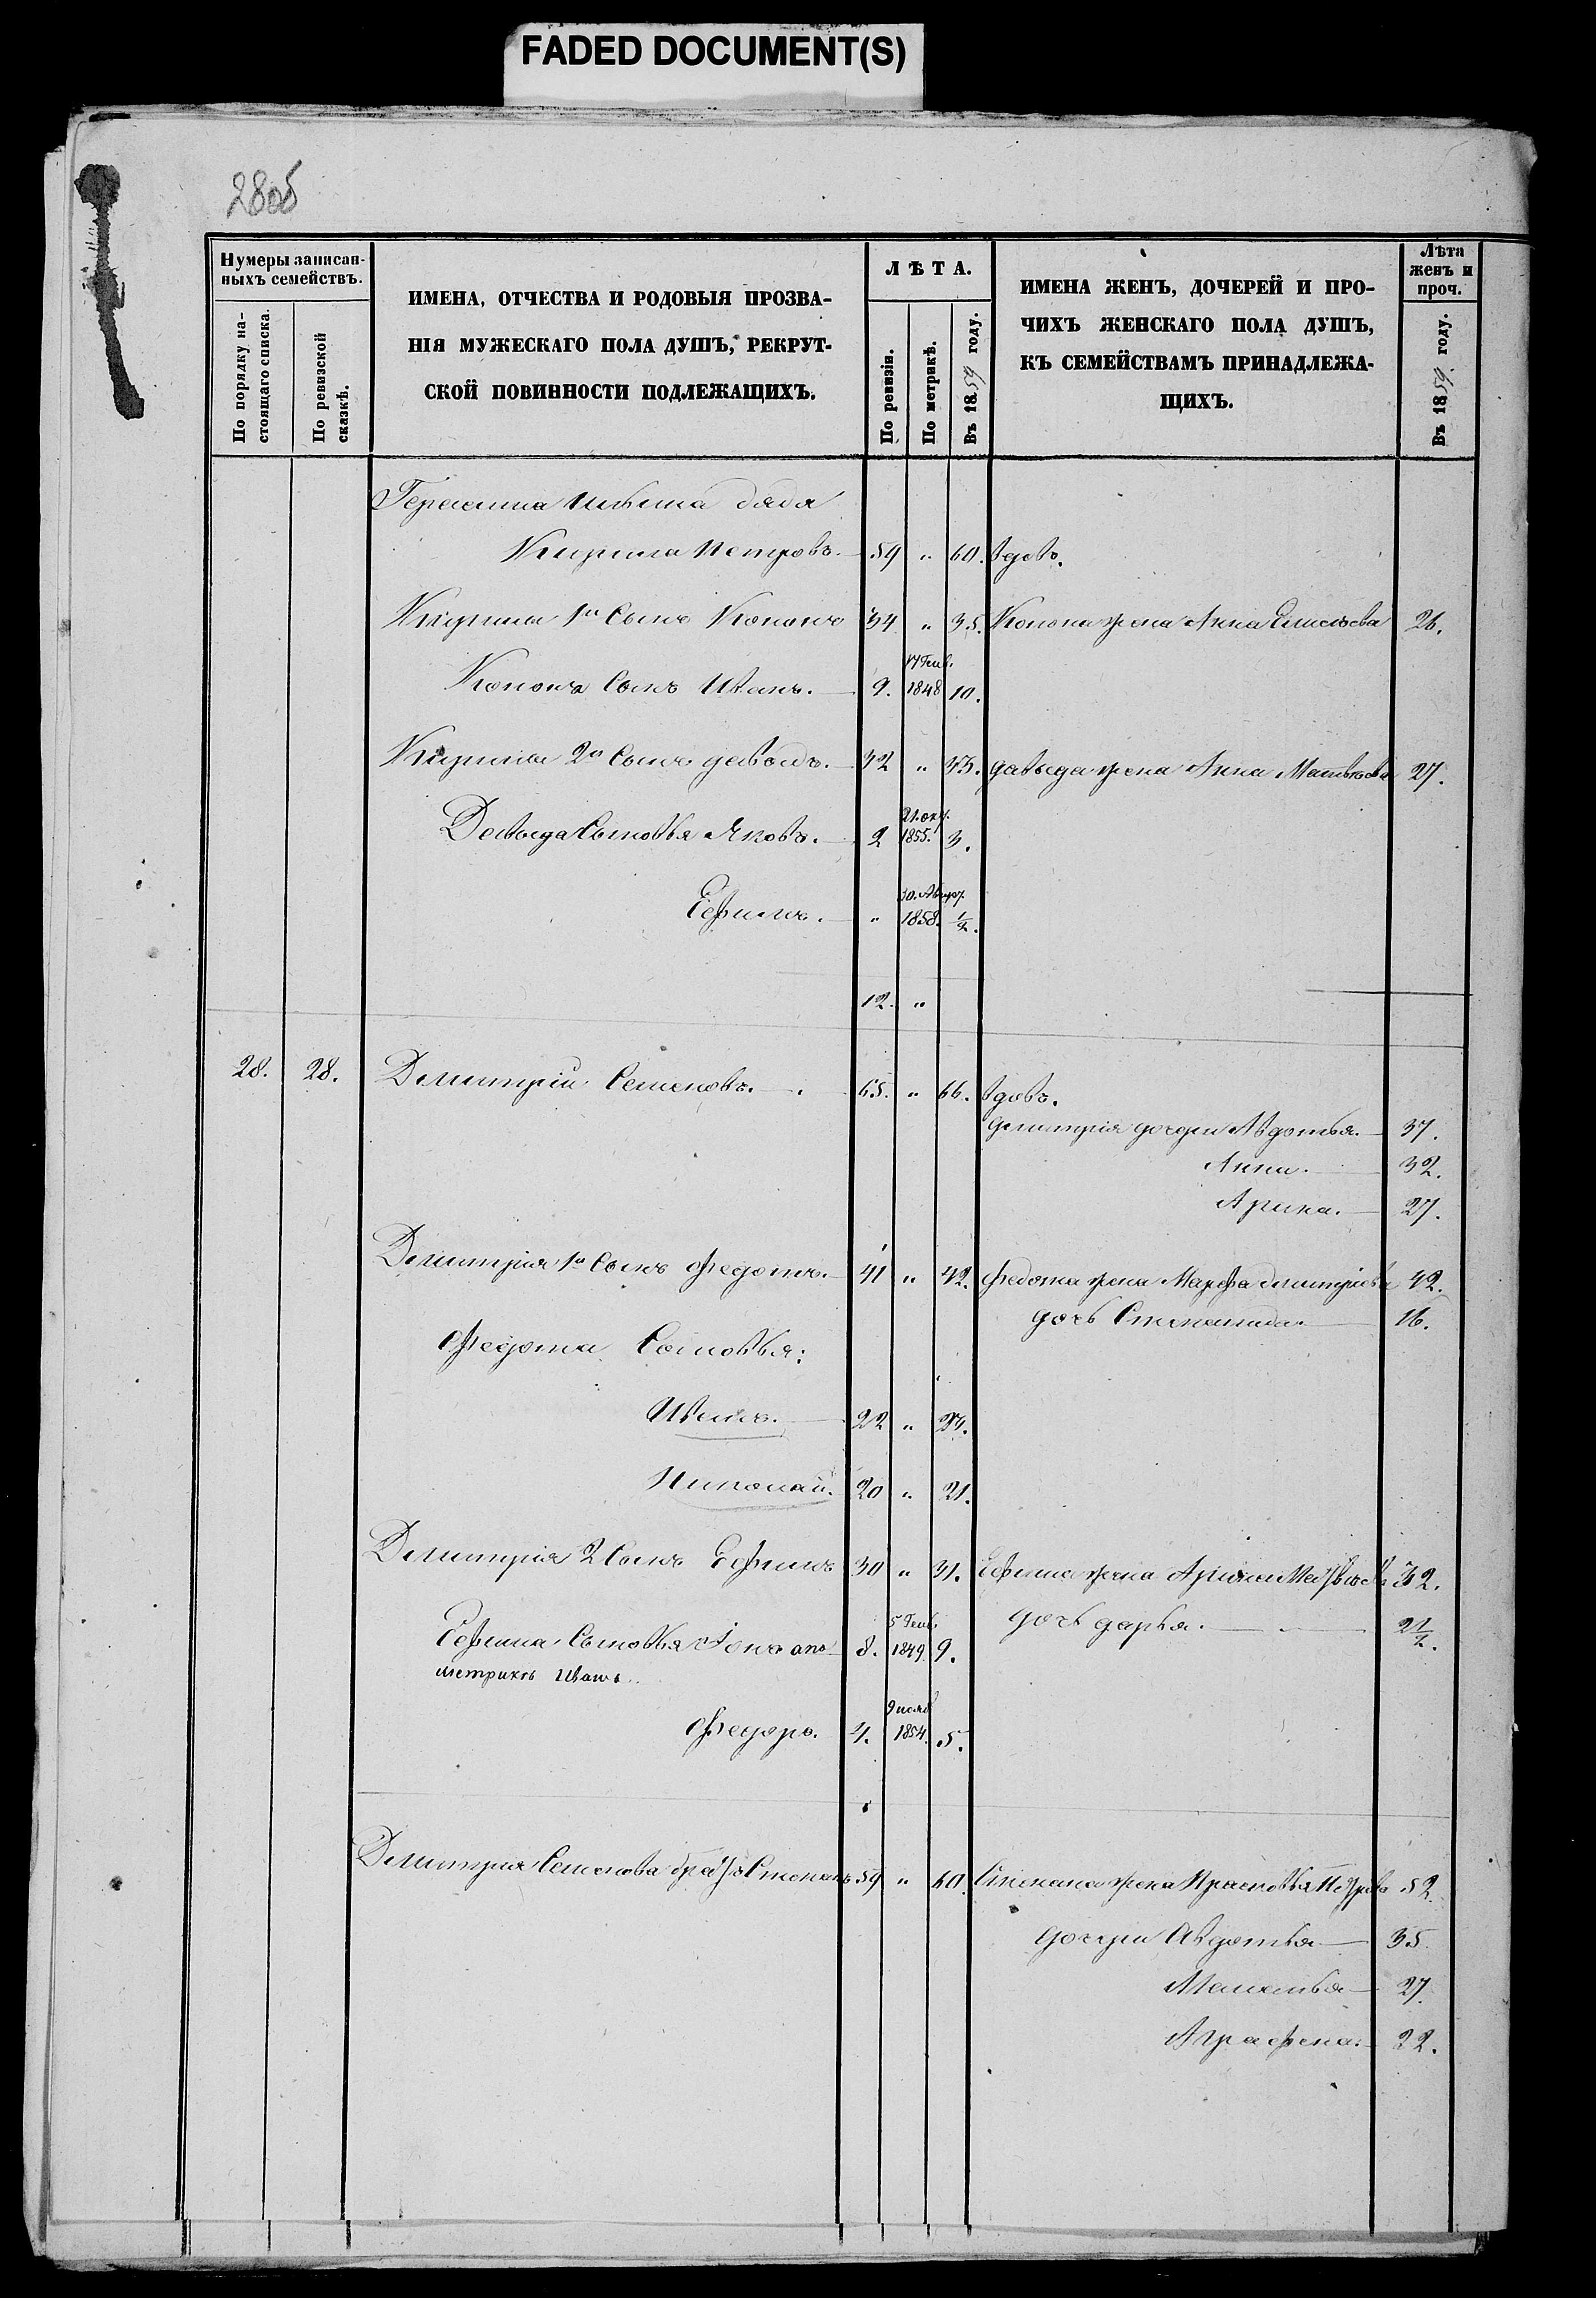 FADED DOCUMENT(S)
28об
Нумеры записан-
ныхъ семействъ.
По порядку на-
стоящаго списка.
По ревизской
сказкѣ.
ИМЕНА, ОТЧЕСТВА И РОДОВЫЯ ПРОЗВА-
НІЯ МУЖЕСКАГО ПОЛА ДУШЪ, РЕКРУТ-
СКОЙ ПОВИННОСТИ ПОДЛЕЖАЩИХЪ.
ЛѢТА.
По ревизіи.
По метрикѣ.
Въ 1859 году.
ИМЕНА ЖЕНЪ, ДОЧЕРЕЙ И ПРО-
ЧИХЪ ЖЕНСКАГО ПОЛА ДУШЪ,
КЪ СЕМЕЙСТВАМЪ ПРИНАДЛЕЖА-
ЩИХЪ.
Лѣта
женъ и
проч.
Въ 1859 году.
дядя
Кирила Петровъ. 59 " 60. вдовъ.
Кирила 1й Сынъ Кононъ 34 " 35. Конона жена Анна Емельева 26.
17 Генв.
Конона Сынъ Иванъ. 9. 1848 10.
Кирила 2й Сынъ давыдъ. 32 " 33. давыда жена Анна Матвѣева 27.
21. окт.
Давыда Сыновья Яковъ. 2 1855. 3.
30. Август.
Ефимъ. " 1858. 1/2.
12. "
28. 28. Дмитрій Семеновъ. 65. " 66. вдовъ.
дмитрія дочери Авдотья. 37.
Анна. 32.
Арина. 27.
Дмитрія 1й Сынъ Федотъ. 41 " 42. Федота жена Марфа дмитріева 42.
дочь Степанида. 16.
Федота Сыновья:
Иванъ. 22 " 23.
Николай. 20 " 21.
Дмитрія 2 Сынъ Ефимъ 30 " 31. Ефима жена Арина 32.
дочь дарья. 2 1/2.
5 Генв.
Ефима Сыновья Іона а по 8. 1849. 9.
метрикѣ Иванъ.
9 нояб
Федоръ. 4. 1854. 5.
Дмитрія Семенова братъ Степанъ 59 " 60. Степана жена Прасковья Петрова 52.
дочери Авдотья 35.
Меланья 27.
Аграфена. 22.